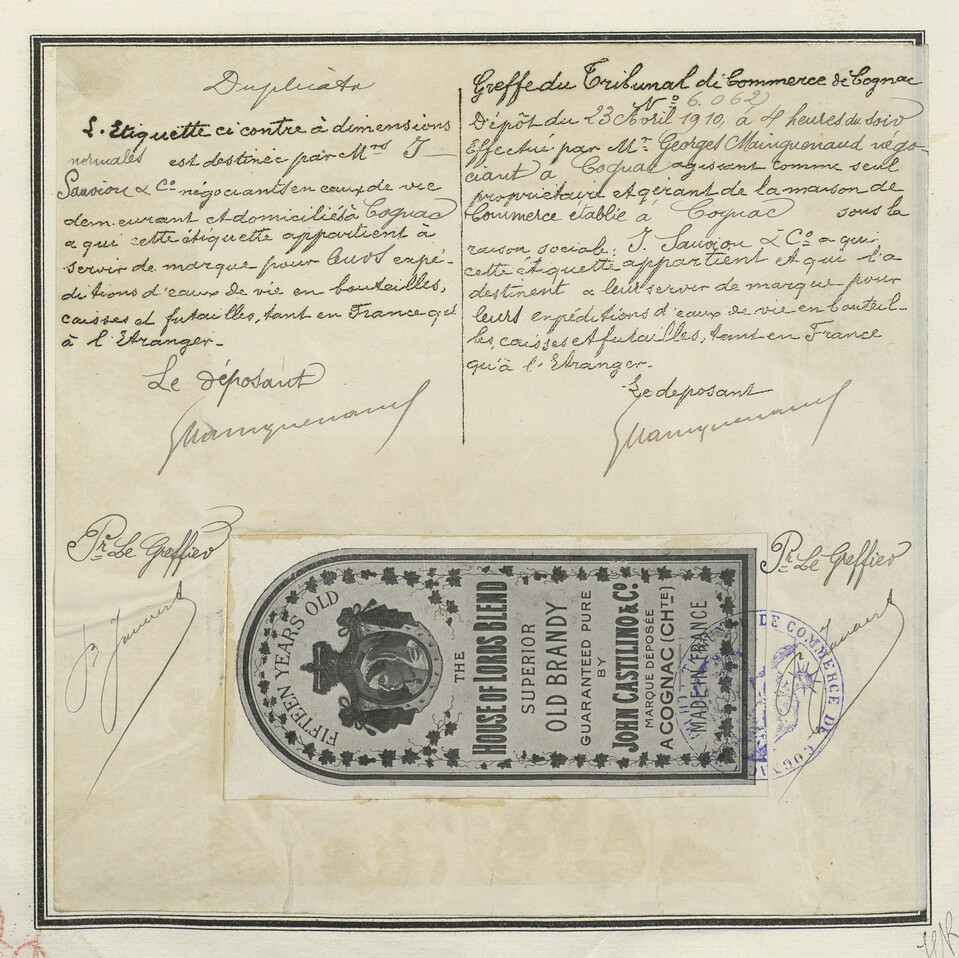 Duplicata
L'Etiquette ci contre à dimensions
normales est destinée par Mrs J
Sauvion & Co négociants en eaux de vie
demeurant et domiciliés à Cognac
a qui cette étiquette appartient à
servir de marque pour leurs expé-
ditions d'eaux de vie en bouteilles,
caisses et futailles, tant en France qu'
à l'Etranger.
Le déposant
GMainguenaud
Greffe du Tribunal de Commerce de Cognac
No 6.062
Dépôt du 23 Avril 1910, à 4 heures du soir
Effectué par Mr Georges Mainguenaud négo-
ciant à Cognac agissant comme seul
propriétaire et gérant de la maison de
Commerce établie à Cognac sous la
raison sociale: J. Sauvion & Co a qui
cette étiquette appartient et qui l'a
destinent a leur servir de marque pour
leurs expéditions d'eaux de vie en bouteil-
les, caisses et futailles, tant en France
qu'à l'Etranger.
Le deposant
GMainguenaud
Pr Le Greffier
Pr Le Greffier
FIFTEEN YEARS OLD
THE
HOUSE OF LORDS BLEND
SUPERIOR
OLD BRANDY
GUARANTEED PURE
BY
JOHN CASTILINO & Co.
MARQUE DÉPOSÉE
A COGNAC (CHTE)
MADE IN FRANCE
DE COMMERCE DE COGNAC